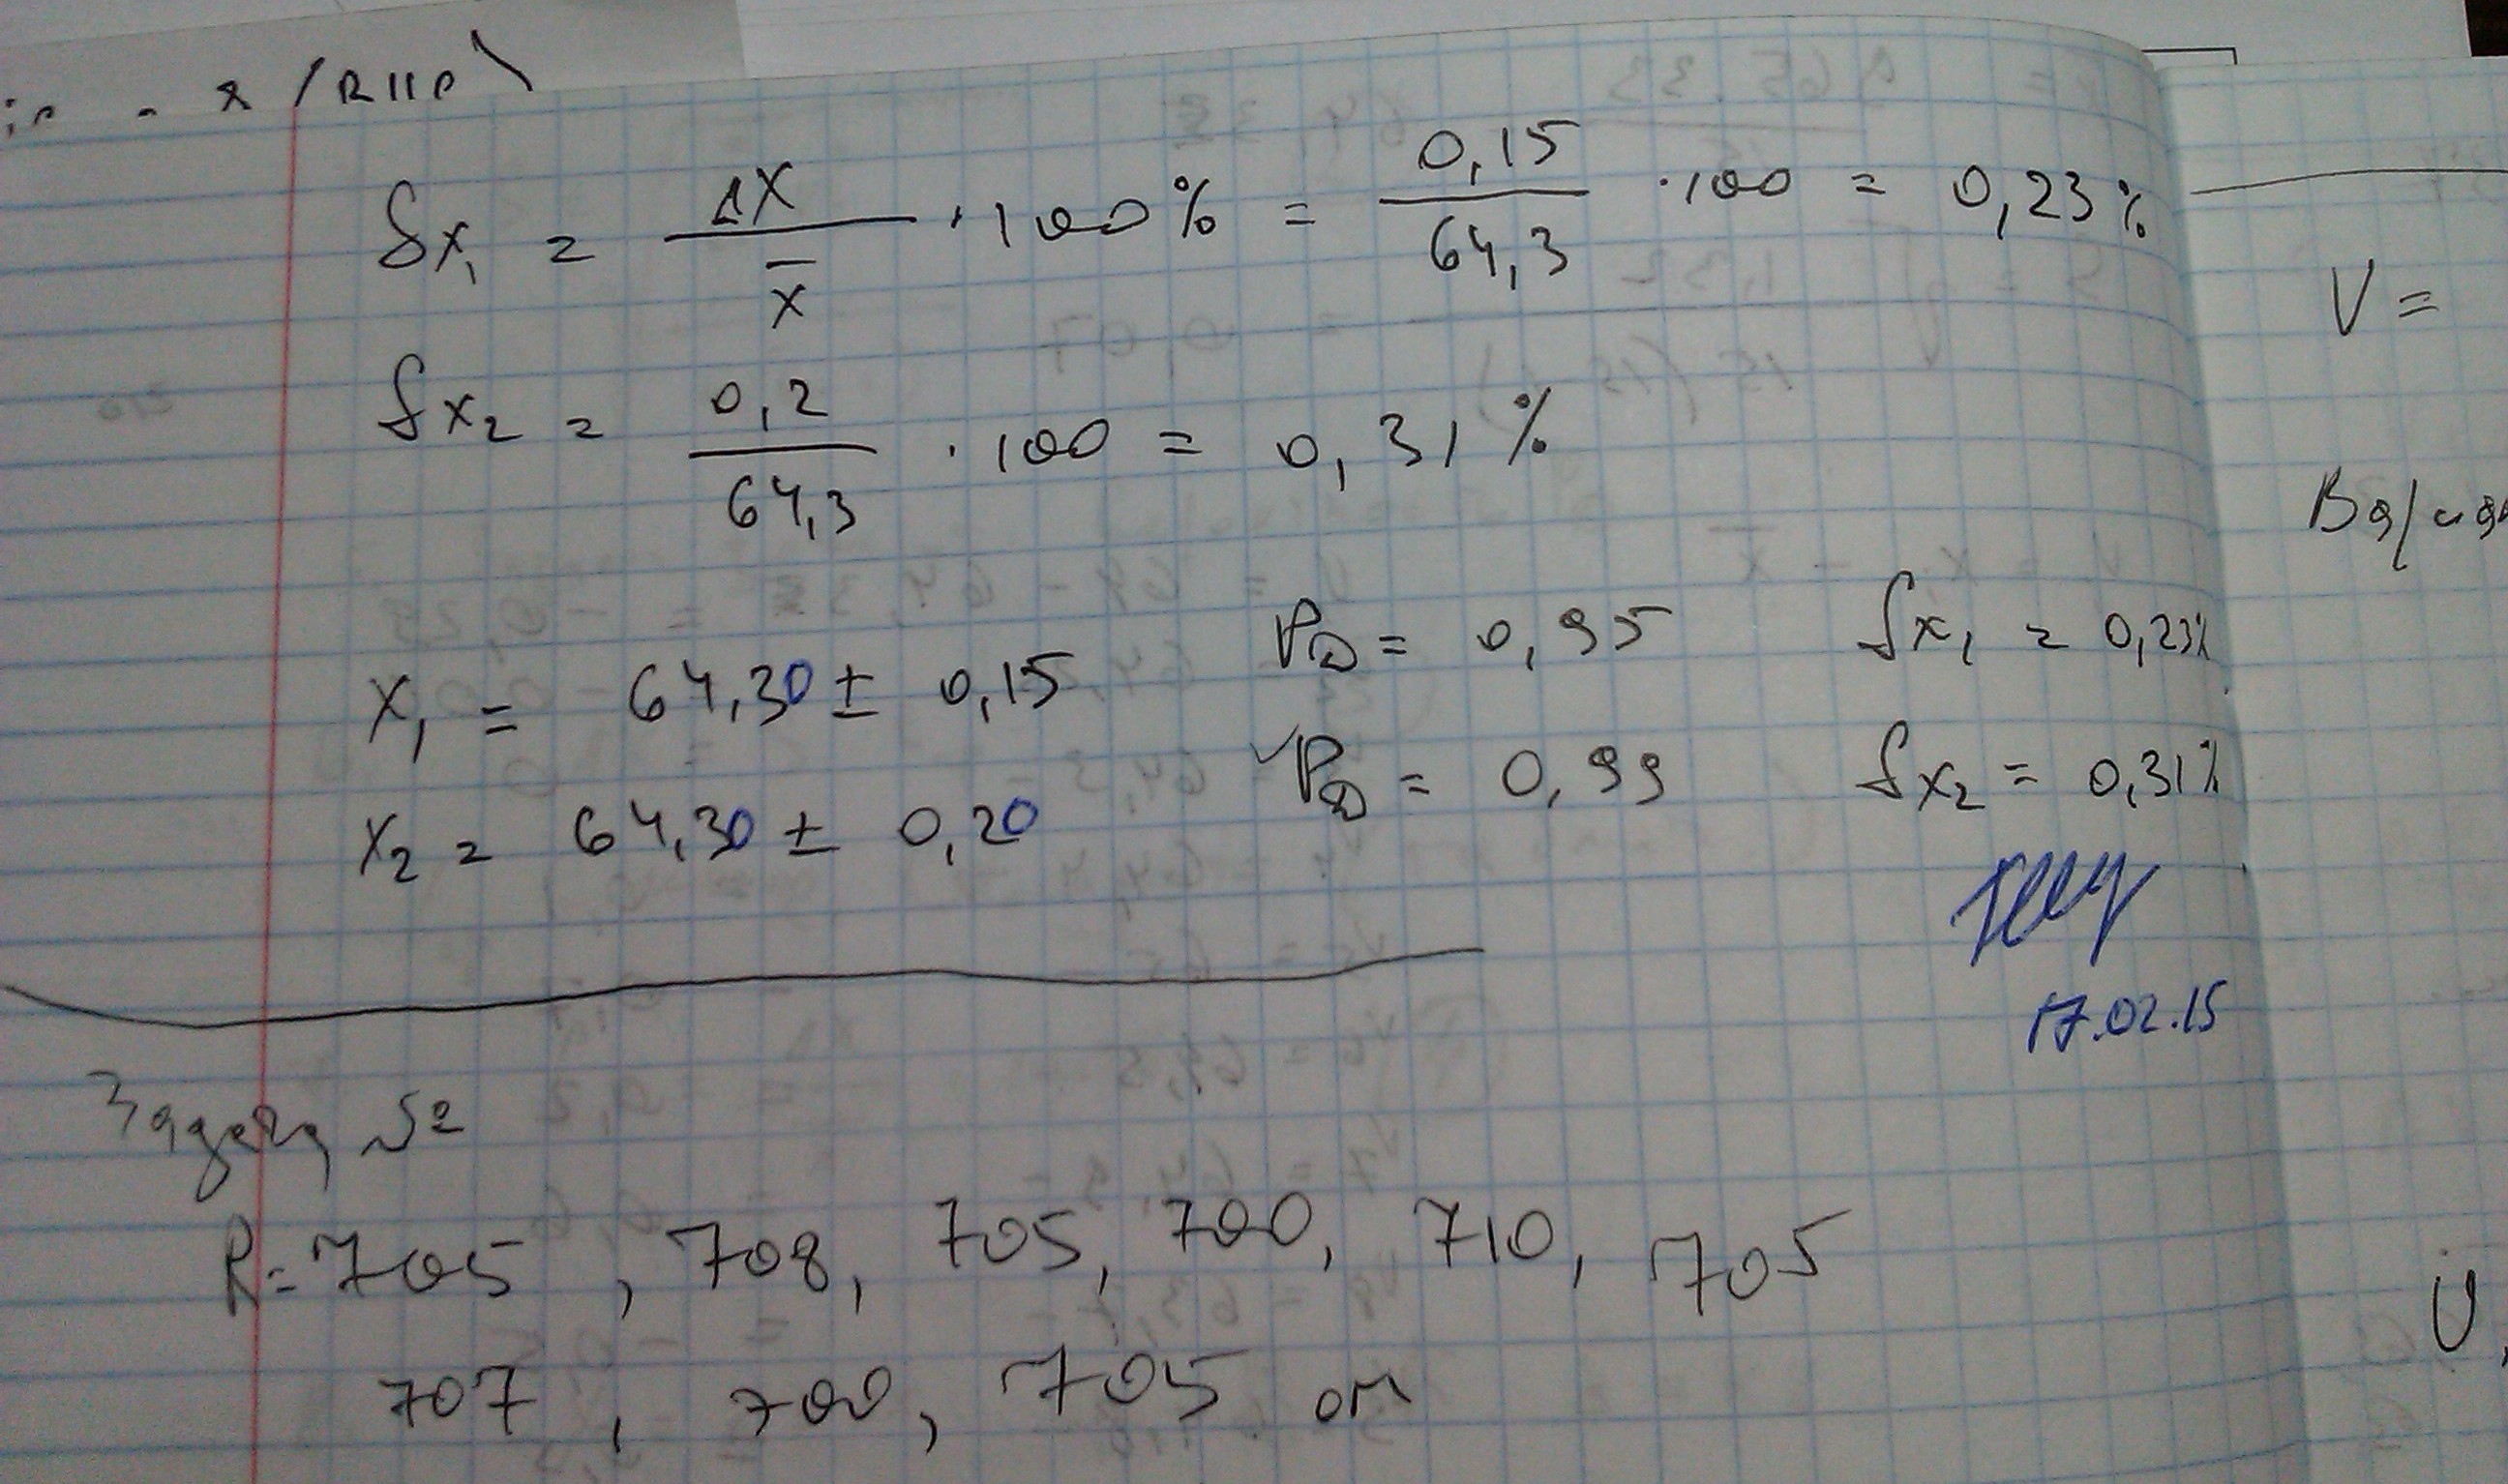 δx₁ = ΔX / x̄ · 100% = 0,15 / 64,3 · 100 = 0,23%
δx₂ = 0,2 / 64,3 · 100 = 0,31%
x₁ = 64,30 ± 0,15 P_D = 0,95 δx₁ = 0,23%
x₂ = 64,30 ± 0,20 P_D = 0,99 δx₂ = 0,31%
17.02.15
Задача №
R = 705, 708, 705, 700, 710, 705
707, 700, 705 ом
V =